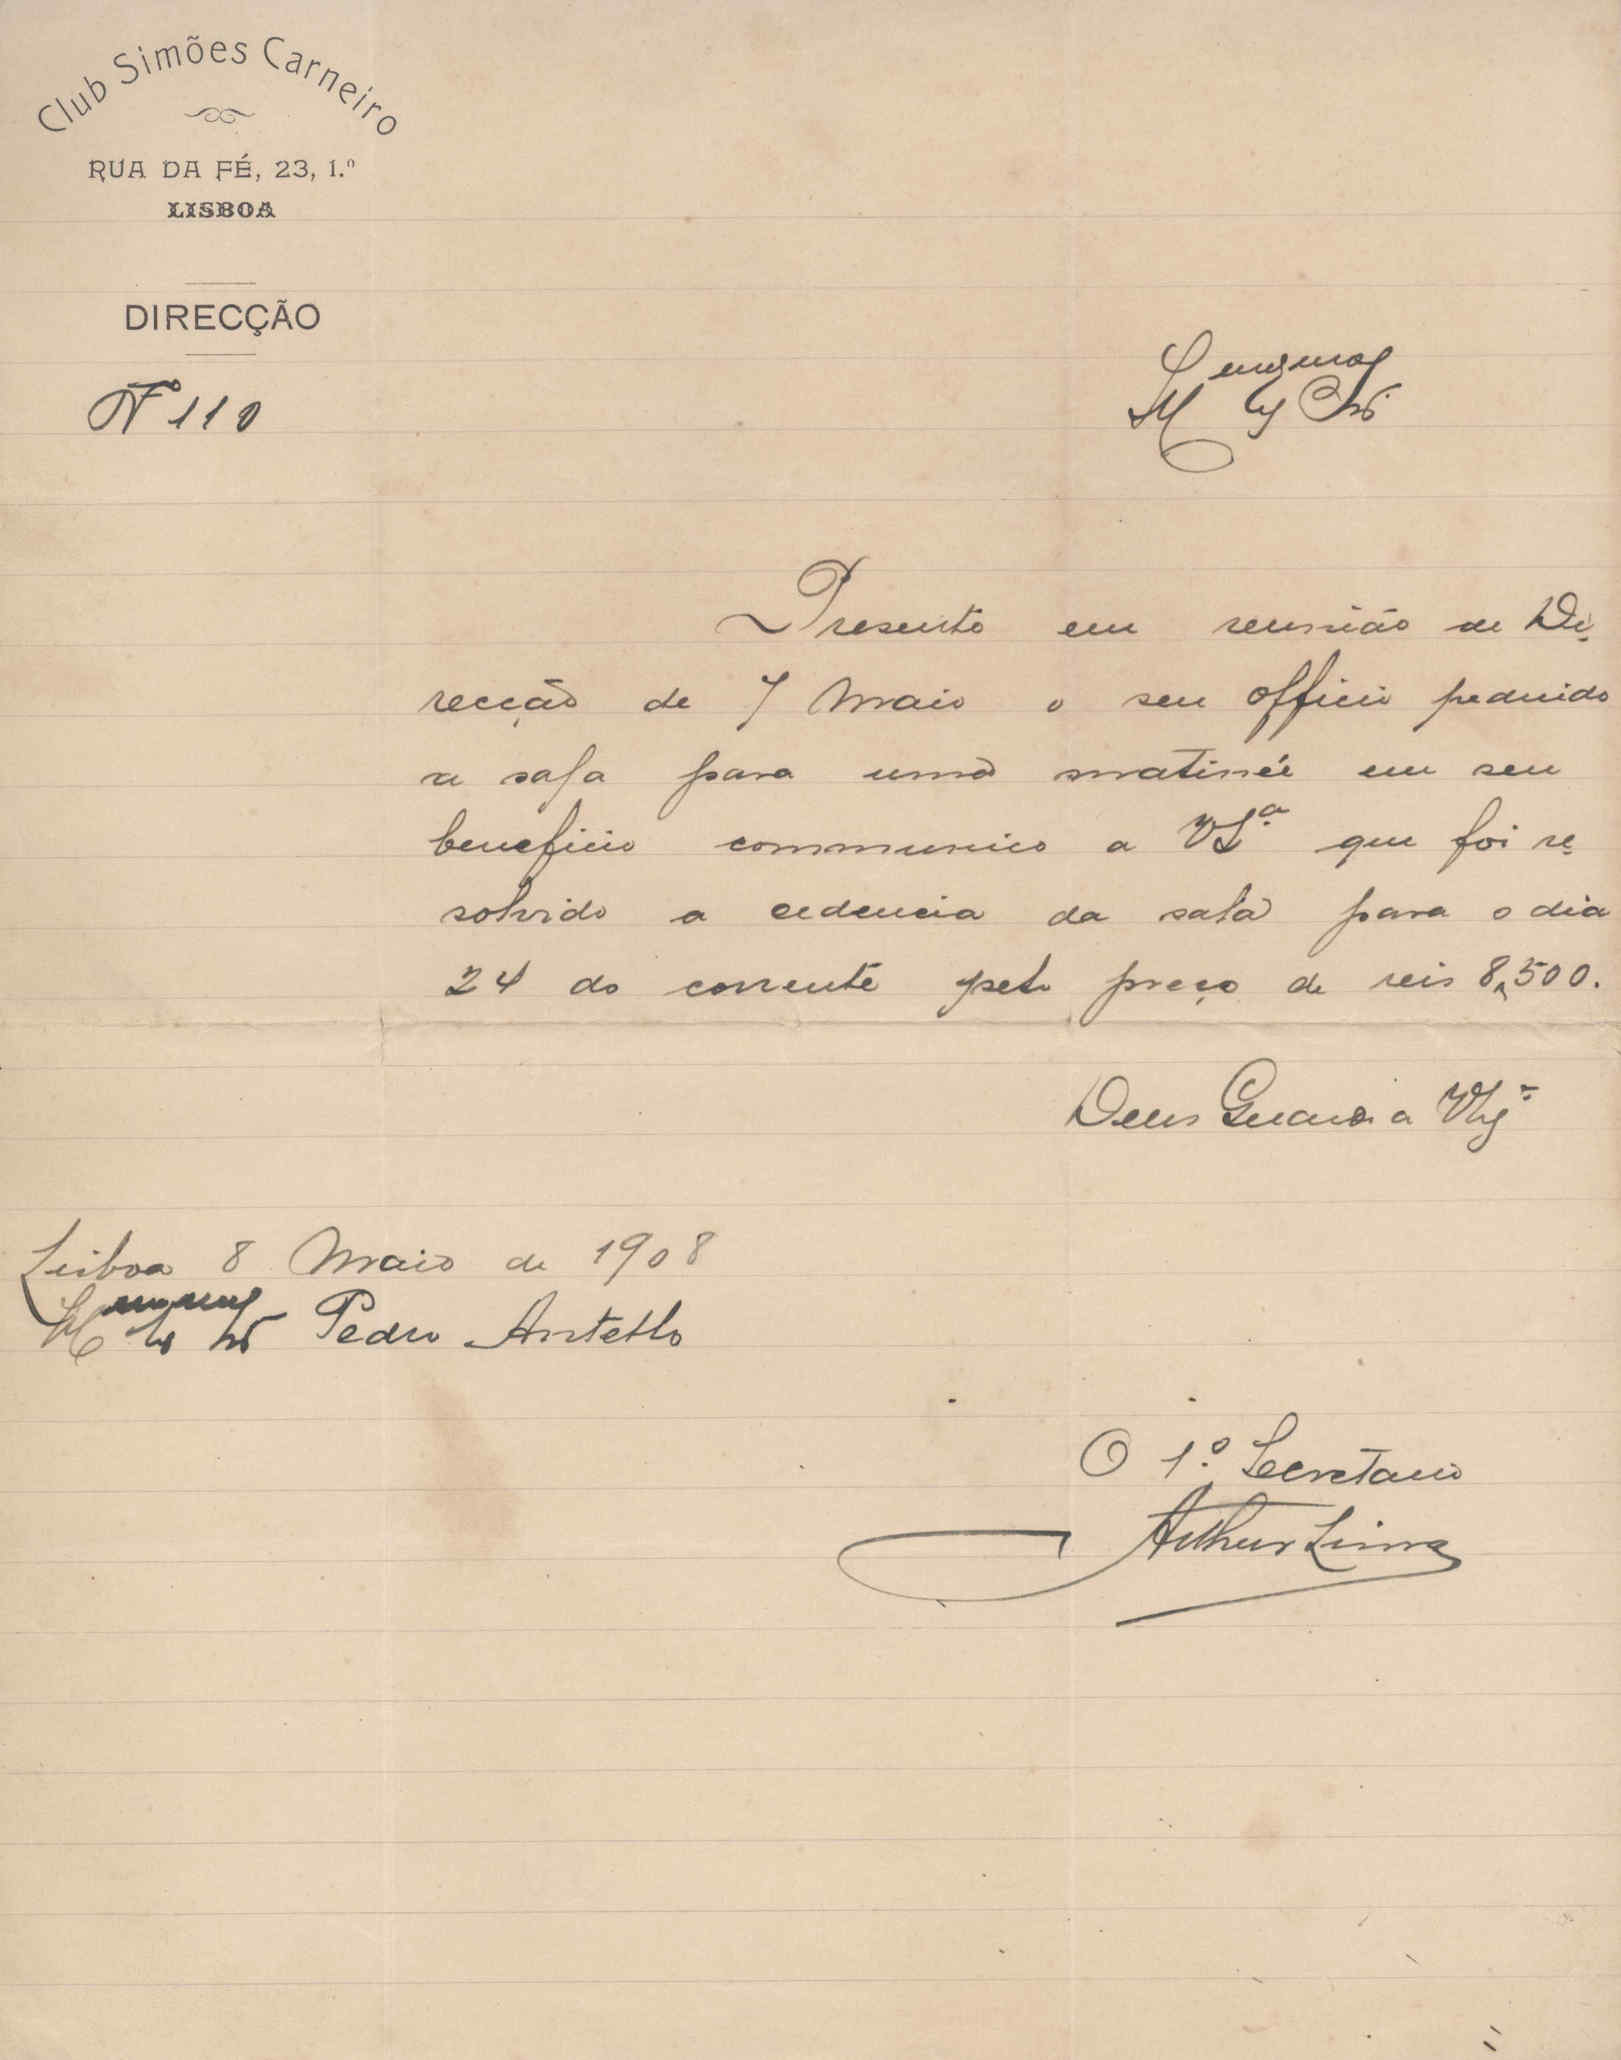 Club Simões Carneiro
RUA DA FÉ, 23, 1.º
LISBOA
DIRECÇÃO
Nº 110
Presente em reunião de Di-
recção de 7 Maio o seu officio pedindo
a sala para uma matinée em seu
beneficio communico a VSª que foi re-
solvido a cedencia da sala para o dia
24 do corrente pelo preço de reis 8$500.
Deus Guarde a
Lisboa 8 Maio de 1908
Pedro
O 1.º Secretario
Arthur Lima